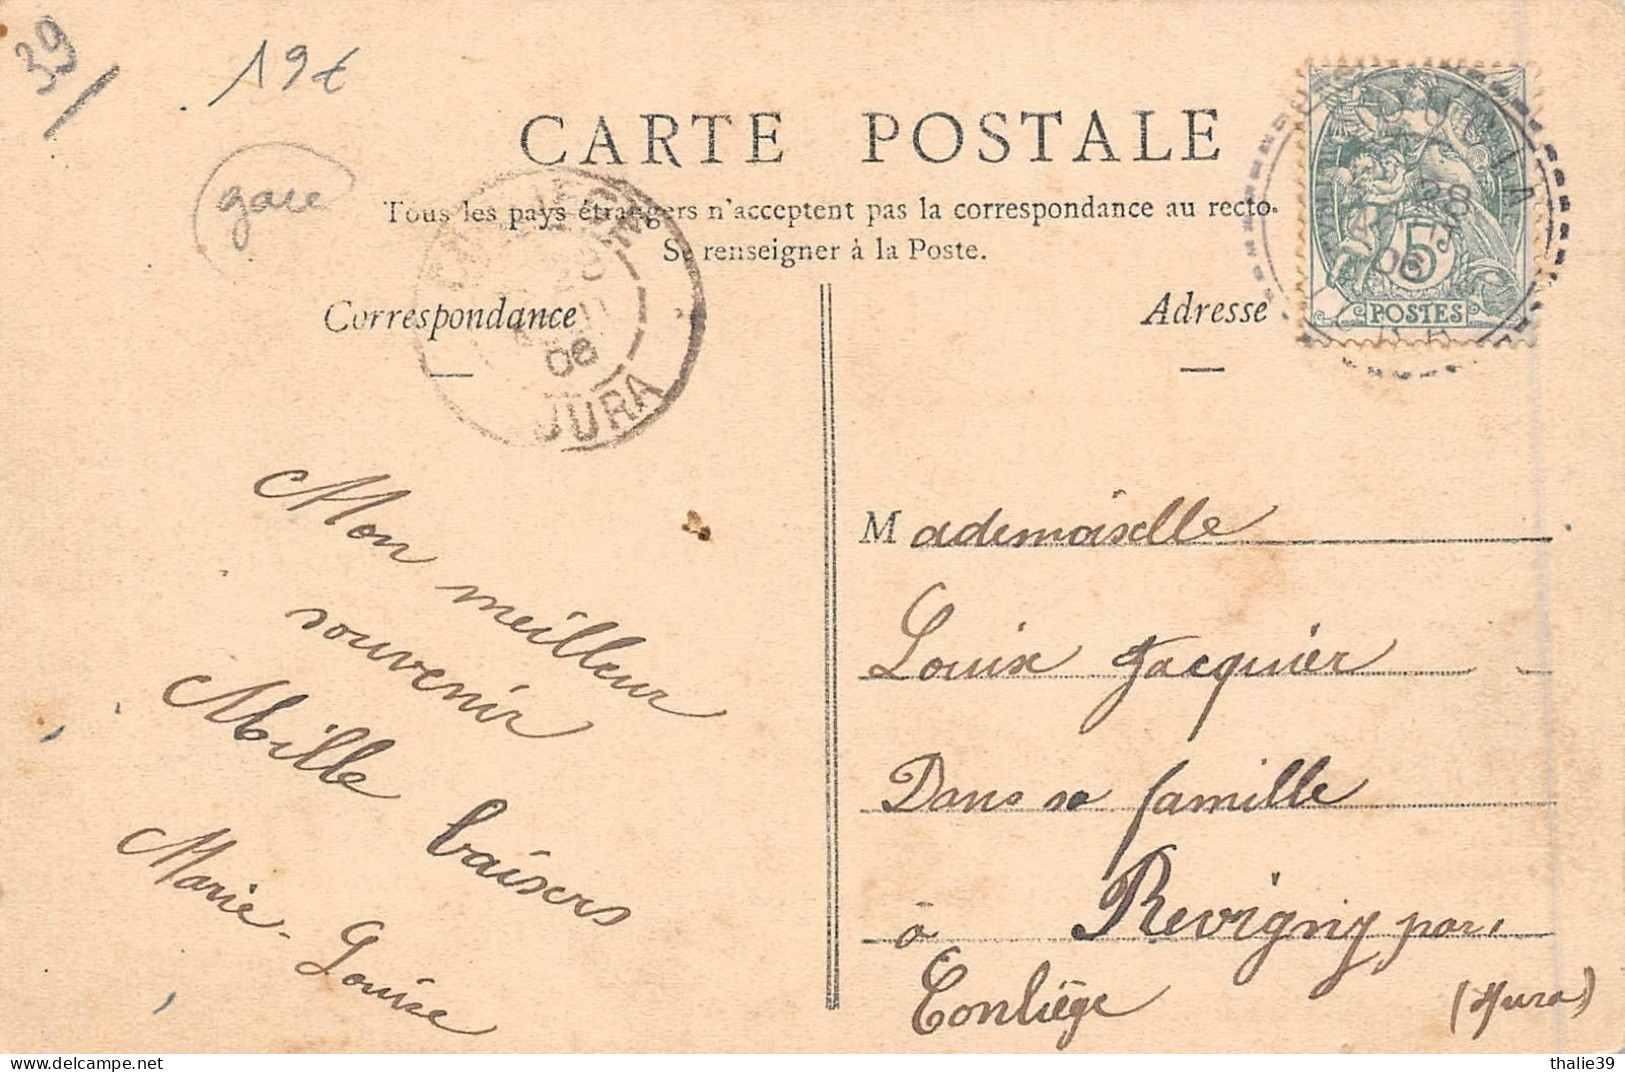 39
19€
gare
CARTE POSTALE
Tous les pays étrangers n'acceptent pas la correspondance au recto.
Se renseigner à la Poste.
Correspondance
Adresse
06
JURA
28
06
5
POSTES
Mon meilleur
souvenir
Mille baisers
Marie-Louise
Mademoiselle
Louise Jacquier
Dans sa famille
à Revigny par
Conliège (Jura)
thalie39